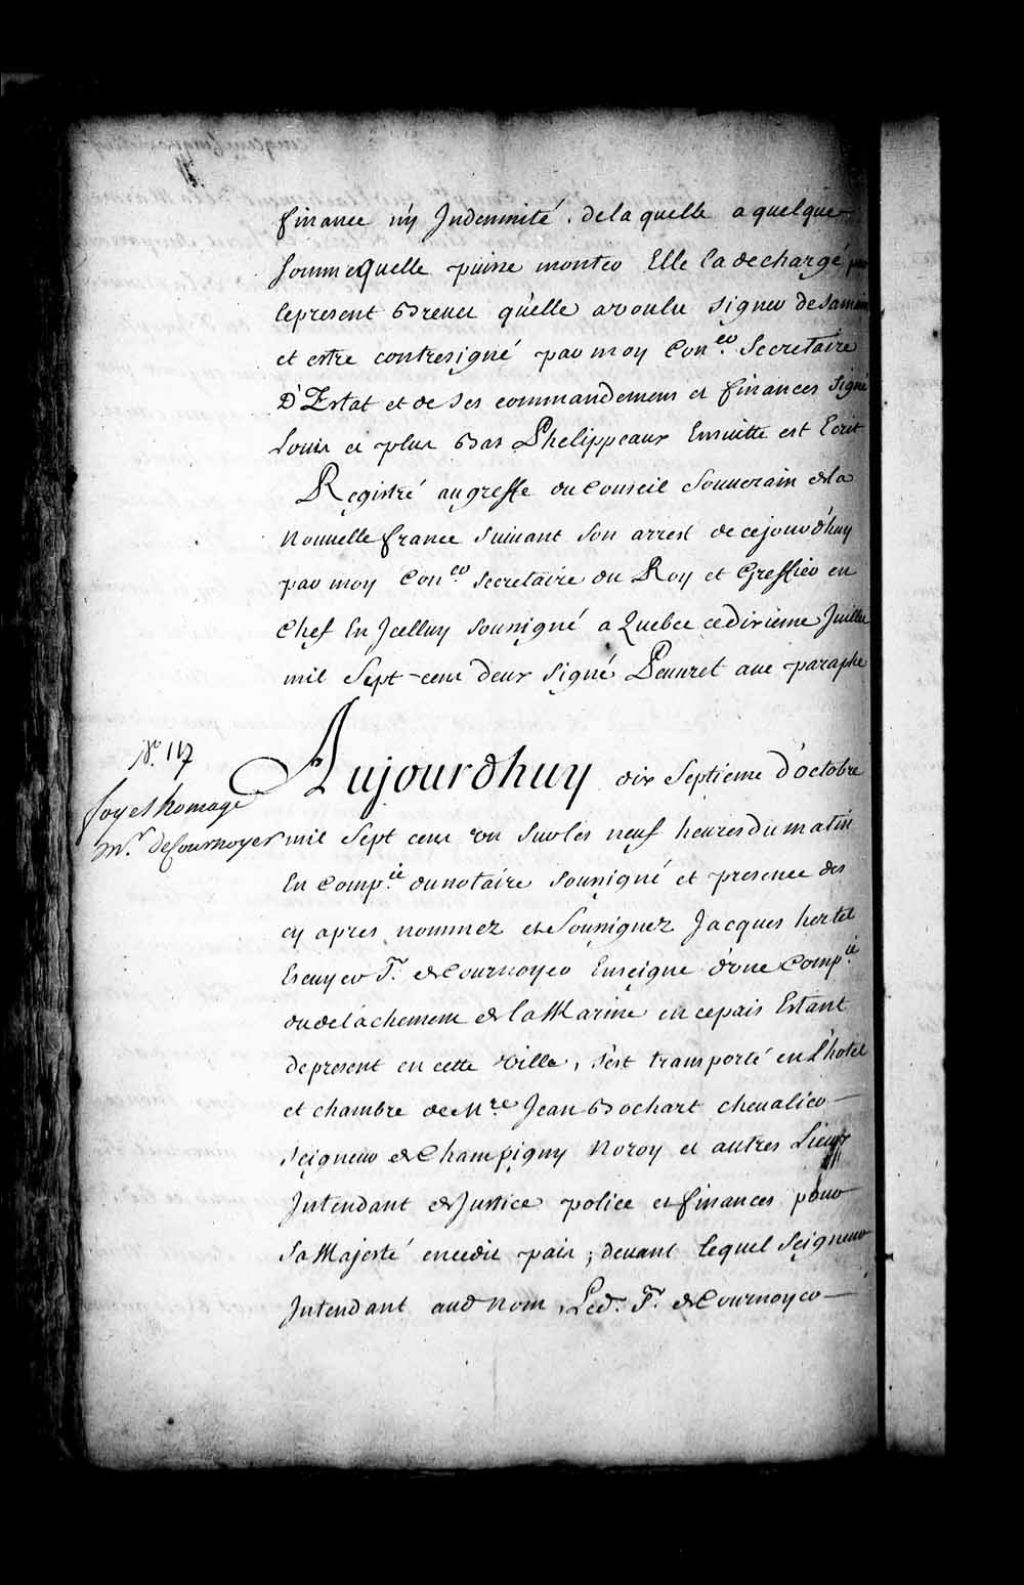 finance n'y Indemnité. de la quelle a quelque
Somme quelle puisse monter Elle la dechargé par
le present Brevet qu'elle a voulu signer de Sa main
et estre contresigné par moy Con.er Secretaire
D'Estat et de Ses commandemens et finances Signé
Louis et plus Bas Phelippeaux Ensuitte est Ecrit
Registré au greffe du Conseil Souverain de la
Nouvelle france suivant Son arrest de cejourd'huy
par moy Con.er Secretaire du Roy et Greffier en
Chef En Icelluy Sousigné a Quebec ce dixieme Juillet
mil Sept-cens deux Signé Peuvret avec paraphe
N.o 117
foy et homage
Mr. de Cournoyer
Aujourdhuy dix Septieme d'octobre
mil Sept cens un Sur les neuf heures du matin
En Comp.ie du notaire Sousigné et presence des
cy apres nommez et Sousignez Jacques hertel
Escuyer Sr. de Cournoyer Enseigne d'une Comp.ie
du detachement de la Marine en ce pais Estant
de present en cette Ville, s'est transporté en L'hotel
et chambre de Mre Jean Bochart chevalier
Seigneur de Champigny Noroy et autres Lieux
Intendant de Justice police et finances pour
Sa Majesté en cedit pais; devant lequel Seigneur
Intendant aud nom, Led. Sr. de Cournoyer